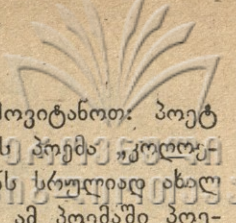 მოვიტანოთ: პოეტ
ს პოემა „კოლოუ-
ს სრულიად ახალ
ამ პოემაში პოე-